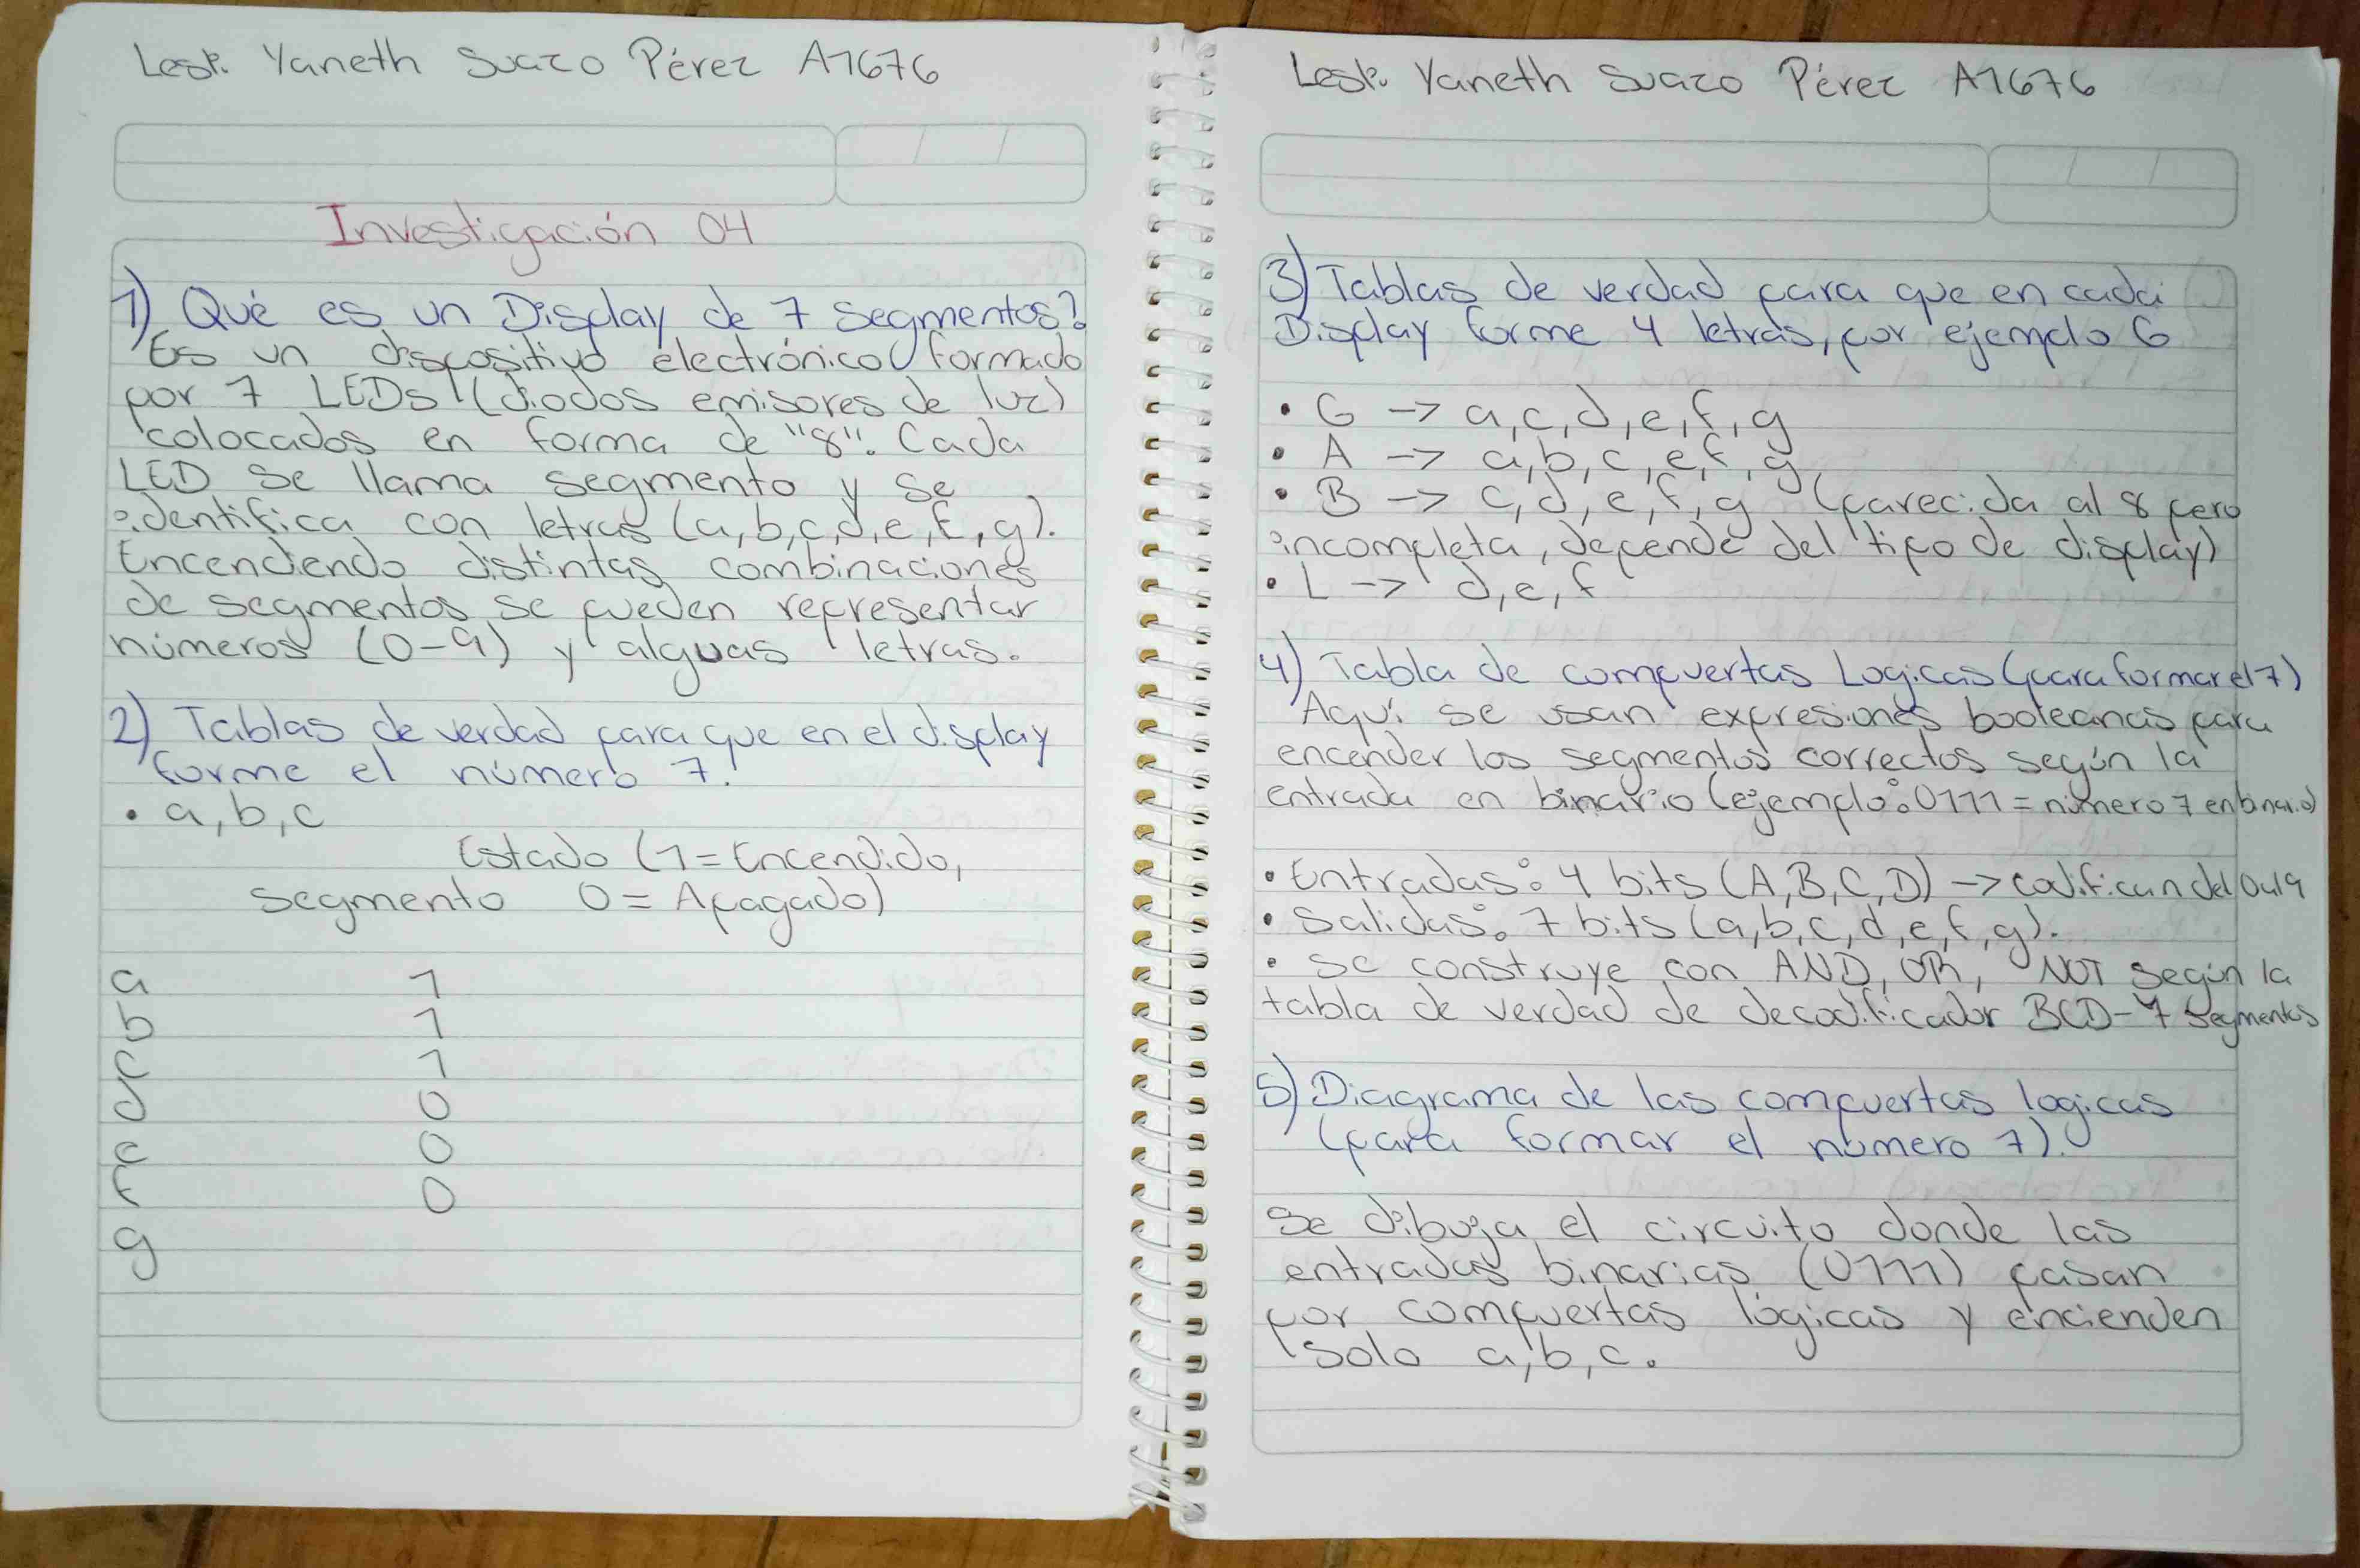 Lesli Yaneth Suazo Pérez A1676
Investigación 04
1) Qué es un Display de 7 Segmentos?
Es un dispositivo electrónico formado
por 7 LEDs (diodos emisores de luz)
colocados en forma de "8". Cada
LED se llama segmento y se
identifica con letras (a,b,c,d,e,f,g).
Encendiendo distintas combinaciones
de segmentos se pueden representar
números (0-9) y alguas letras.
2) Tablas de verdad para que en el display
forme el número 7.
• a,b,c
Estado (1=Encendido,
segmento 0=Apagado)
a 1
b 1
c 1
d 0
e 0
f 0
g
Lesli Yaneth Suazo Pérez A1676
3) Tablas de verdad para que en cada
Display forme 4 letras, por ejemplo G
• G -> a,c,d,e,f,g
• A -> a,b,c,e,f,g
• B -> c,d,e,f,g (parecida al 8 pero
incompleta, depende del tipo de display)
• L -> d,e,f
4) Tabla de compuertas Logicas (para formar el 7)
Aquí se usan expresiones booleanas para
encender los segmentos correctos según la
entrada en binario (ejemplo: 0111 = número 7 en binario)
• Entradas: 4 bits (A,B,C,D) -> codifican del 0 al 9
• Salidas: 7 bits (a,b,c,d,e,f,g).
• Se construye con AND, OR, NOT según la
tabla de verdad de decodificador BCD-7 segmentos
5) Diagrama de las compuertas logicas
(para formar el número 7).
Se dibuja el circuito donde las
entradas binarias (0111) pasan
por compuertas lógicas y encienden
solo a,b,c.